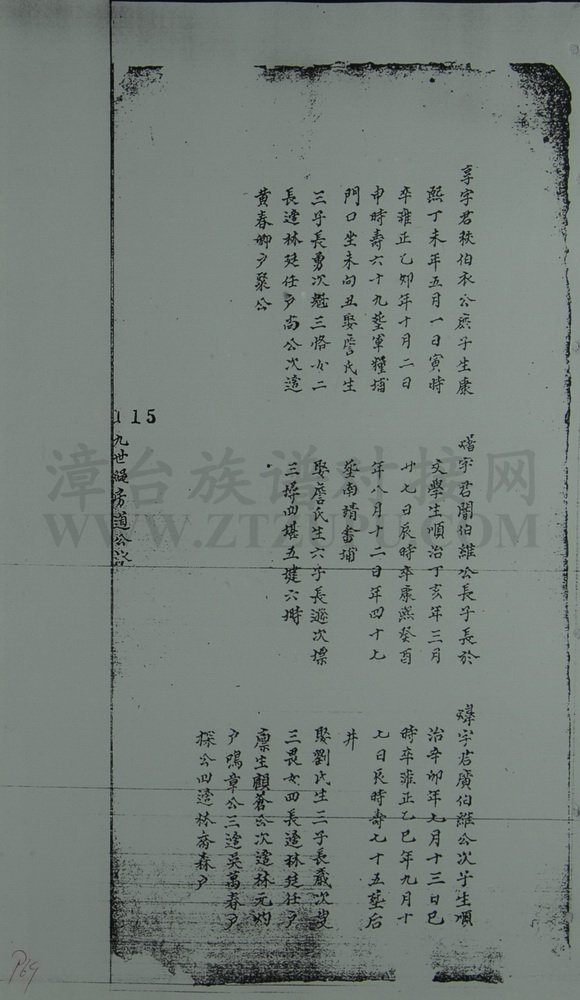 享字君秩伯衣公庶子生康
熙丁未年五月一日寅時
卒雍正乙卯年十月二日
申時壽六十九塟軍糧埔
門口坐未向丑娶詹氏生
三子長勇次三恪女二
長適林廷任戶尚公次適
黄春卿戶聚公
字君闇伯維公長子長於
文學生順治丁亥年三月
廿七日辰時卒康熙癸酉
年八月十二日年四十七
塟南靖畨埔
娶詹氏生六子長次標
三擇四堪五揵六塒
字君廣伯維公次子生順
治辛卯年七月十三日巳
時卒雍正乙巳年九月十
七日辰時壽七十五塟后
井
娶劉氏生三子長歲次叟
三畏女四長適林廷任戶
廪生顧蒼公次適林元灼
戶鳴章公三適吳萬春戶
探公四適林喬森戶
115
九世房道公
漳台族谱对接网
WWW.ZTZUPU.COM
P69